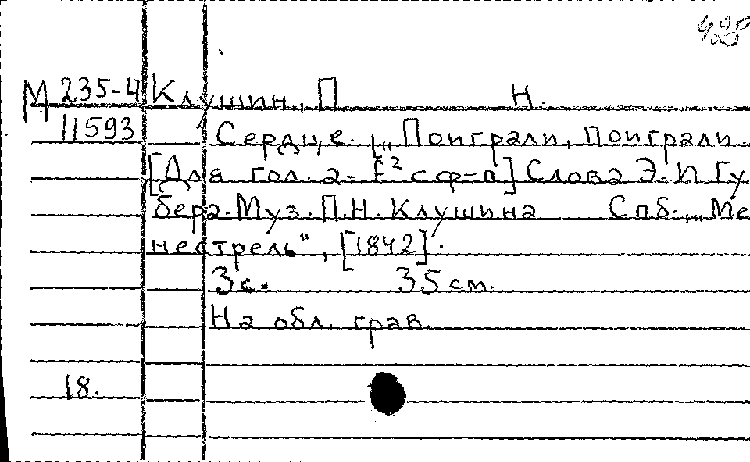 428
М 235-4 Клушин, П Н.
11593 Сердце. „Поиграли, поиграли.
[Для гол. a-f² с ф-п] Слова Э. И Гу
бера. Муз. П. Н. Клушина Спб., „Ме
нестрель", [1842].
3 с. 35 см.
На обл. грав.
18.